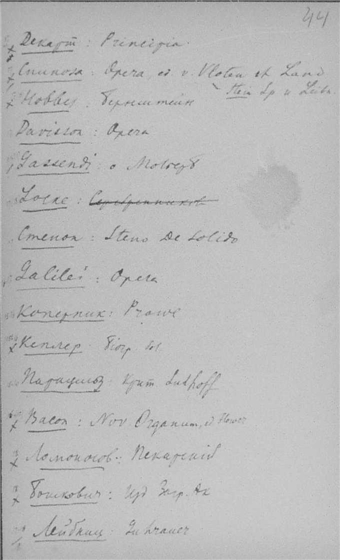 44
Декарт: Principia
Спиноза: Opera, ed v. Vloten et Land
Stein Sp u Leibn.
Hobbes: Бернштейн
Davisson: Opera
Gassendi: о Molvegt
Locke: Серебренников
Стенон: Steno De Solido
Galilei: Opera
Коперник: Prowe
Кеплер:
Парацельз: крит Sudhoff
Bacon: Nov Organum, ed Fowler
Ломоносов: Пекарский
Бошкович: изд Загр. Ак
Лейбниц: Guhrauer